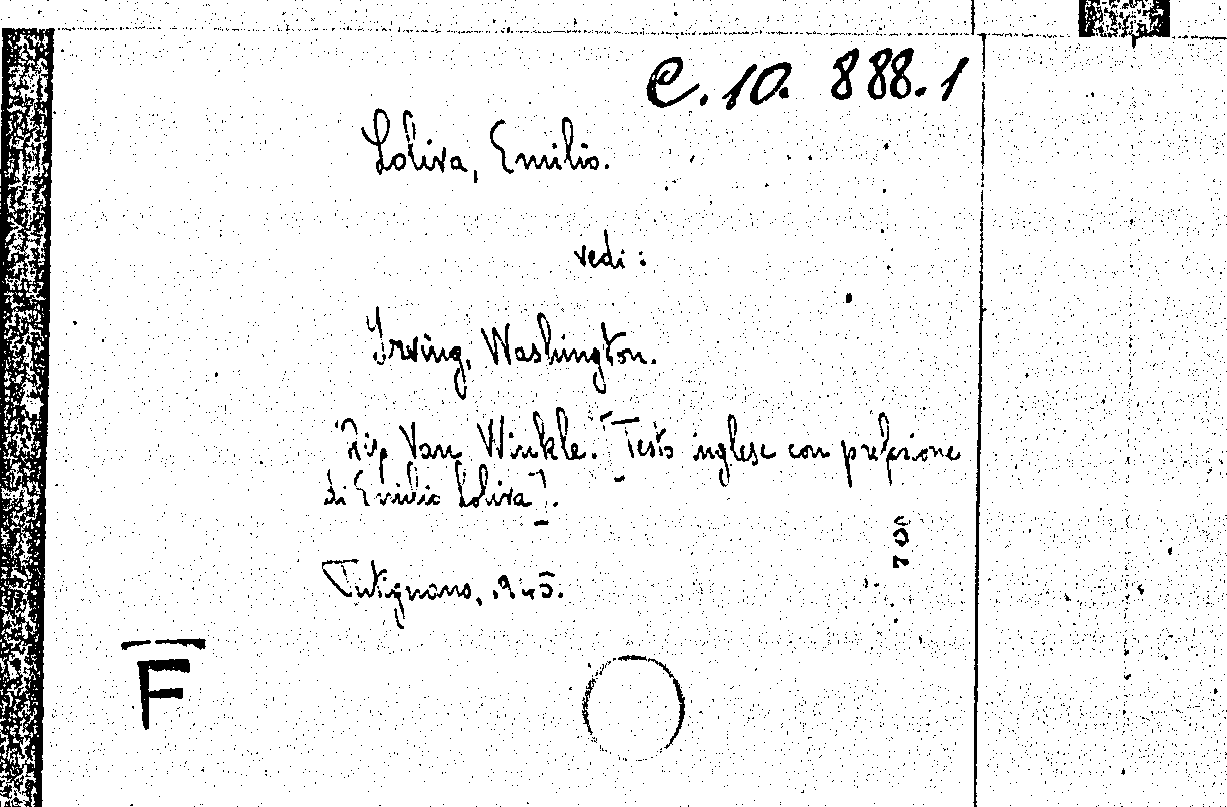 C. 10. 888.1
Loliva, Emilio.
vedi :
Irving, Washington.
Rip Van Winkle. [Testo inglese con prefazione
di Emilio Loliva].
Putignano, 1945.
F